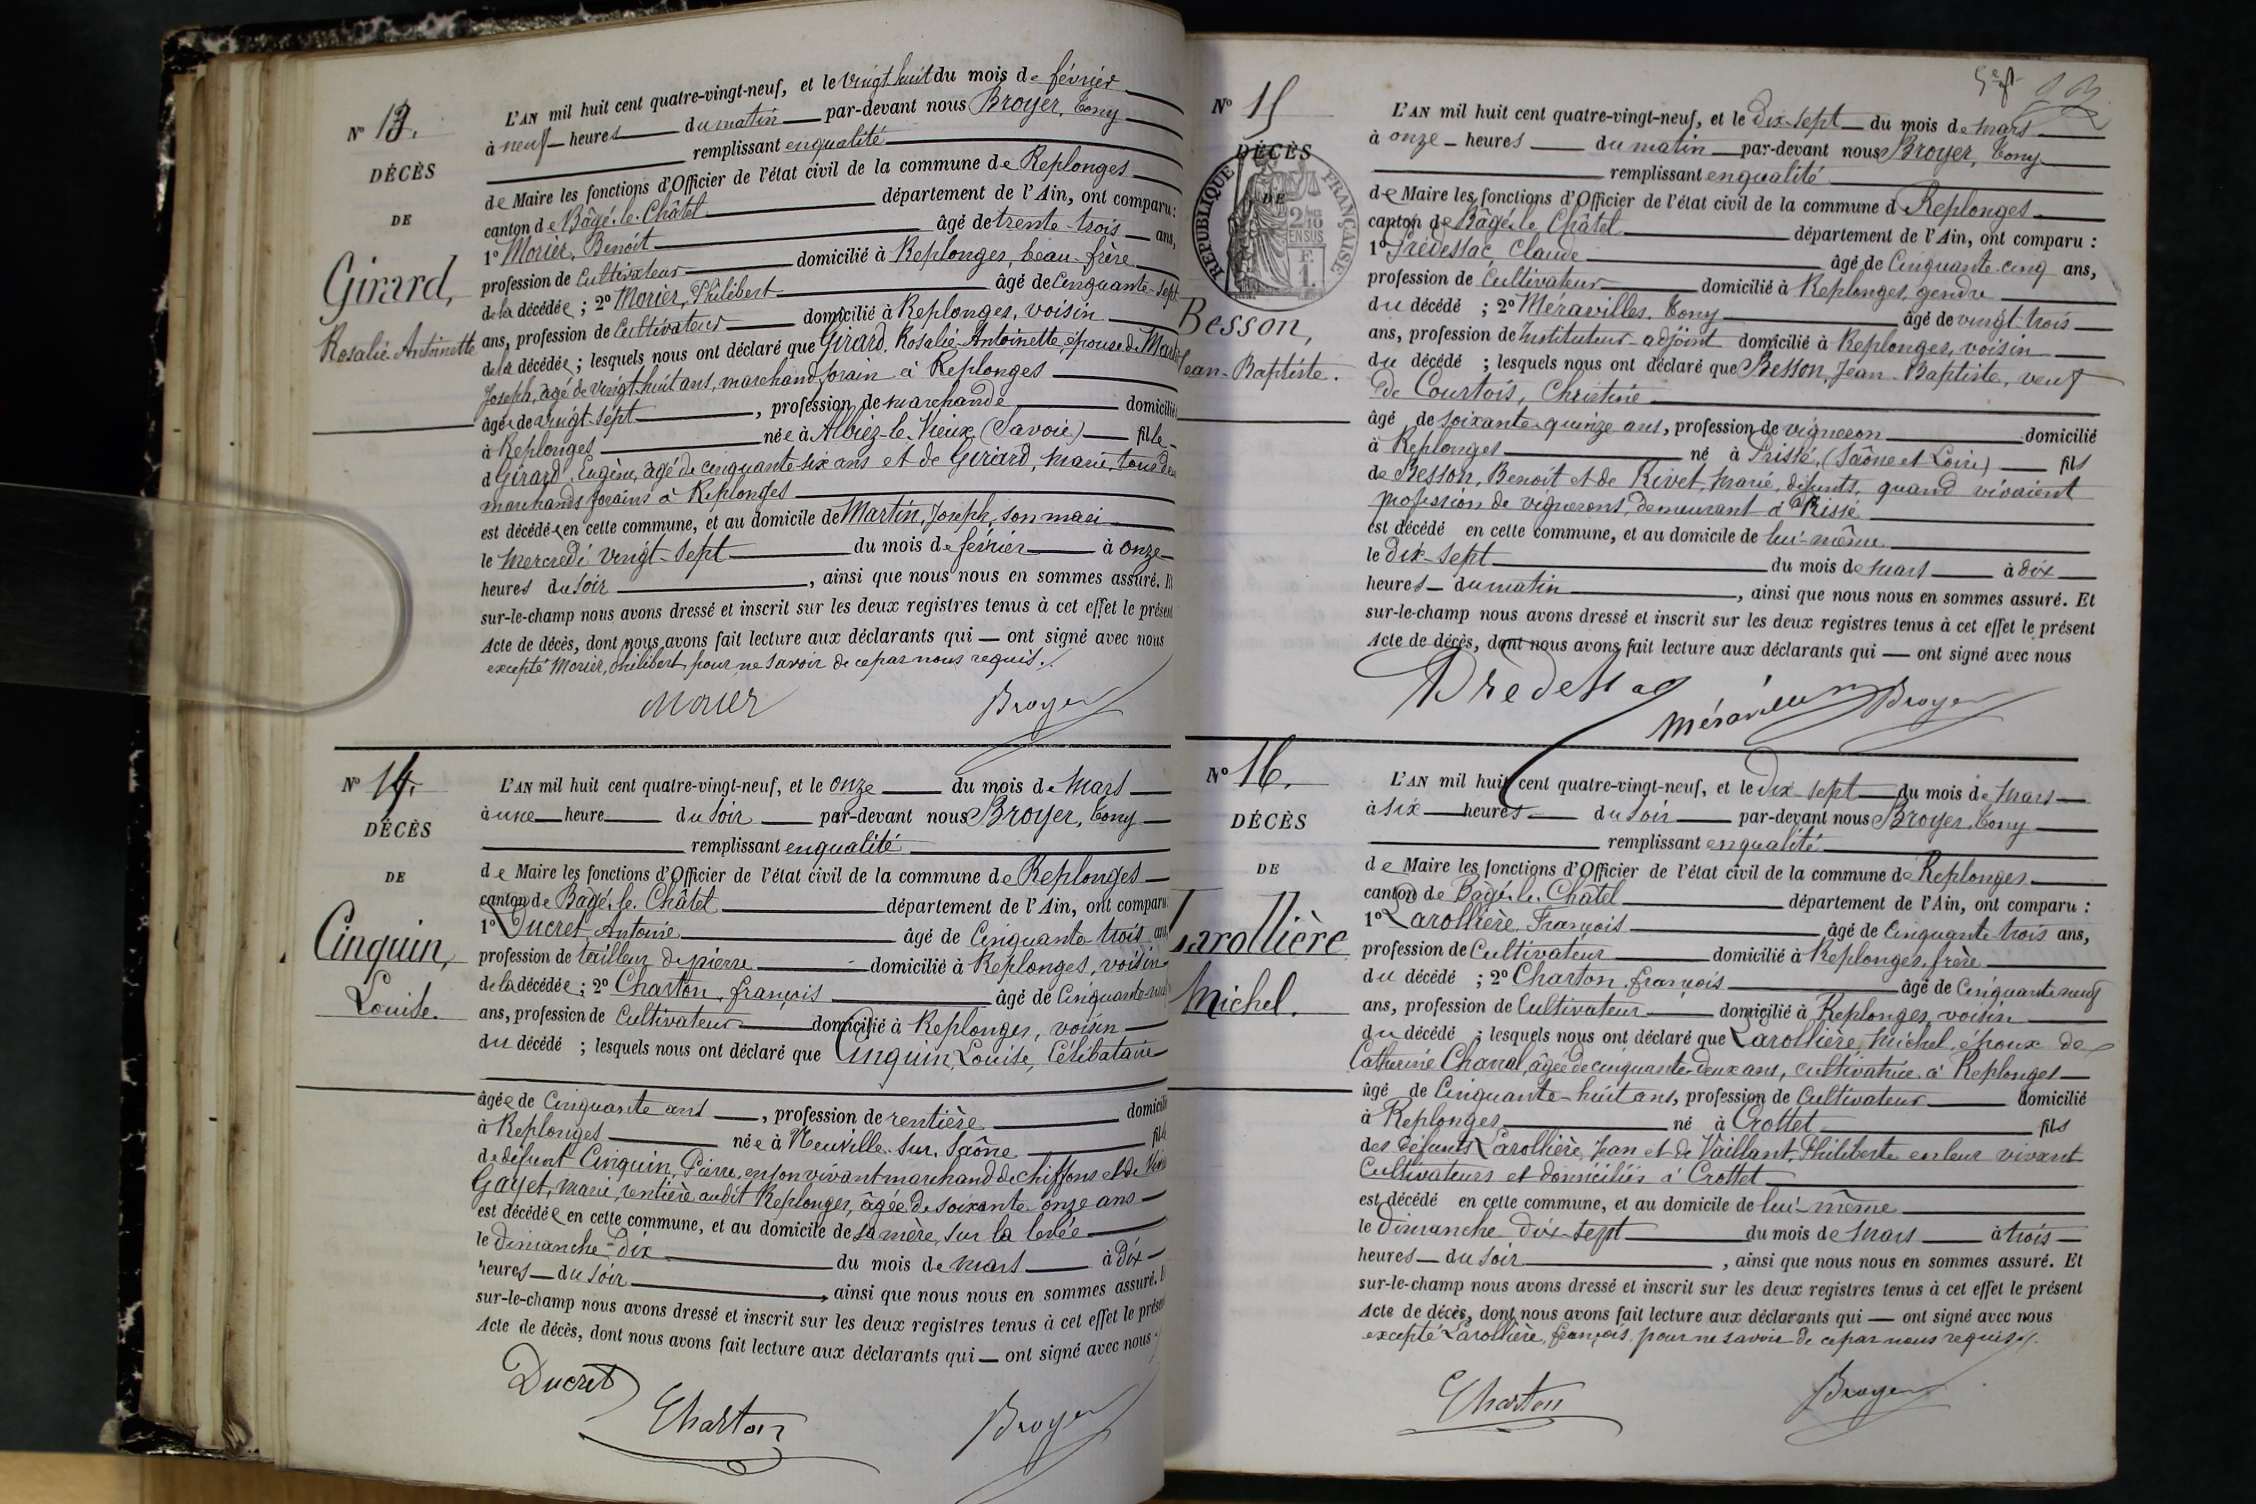 N° 13.
DÉCÈS
DE
Girard,
Rosalie Antoinette
L'AN mil huit cent quatre-vingt-neuf, et le vingt huit du mois de février
à neuf heures du matin par-devant nous Broyer, Tony
remplissant en qualité
de Maire les fonctions d'Officier de l'état civil de la commune de Replonges
canton de Bâgé-le-Châtel département de l'Ain, ont comparu :
1° Morier, Benoit âgé de trente-trois ans,
profession de Cultivateur domicilié à Replonges, beau-frère
de la décédée ; 2° Morier, Philibert âgé de Cinquante-sept
ans, profession de Cultivateur domicilié à Replonges, voisin
de la décédée ; lesquels nous ont déclaré que Girard, Rosalie-Antoinette, épouse de Martin
Joseph, âgé de vingt-huit ans, marchand forain à Replonges
âgée de vingt-sept , profession de marchande domiciliée
à Replonges née à Albiez-le-Vieux (Savoie) fille
d Girard, Eugène, âgé de cinquante-six ans et de Girard, Marie, tous deux
marchands forains à Replonges
est décédée en cette commune, et au domicile de Martin, Joseph, son mari
le Mercredi vingt-sept du mois de février à onze
heures du soir , ainsi que nous nous en sommes assuré. Et
sur-le-champ nous avons dressé et inscrit sur les deux registres tenus à cet effet le présent
Acte de décès, dont nous avons fait lecture aux déclarants qui — ont signé avec nous
excepté Morier, Philibert pour ne savoir de ce par nous requis.
Morier Broyer
N° 14.
DÉCÈS
DE
Cinquin,
Louise.
L'AN mil huit cent quatre-vingt-neuf, et le onze du mois de Mars
à une heure du soir par-devant nous Broyer, Tony
remplissant en qualité
de Maire les fonctions d'Officier de l'état civil de la commune de Replonges
canton de Bâgé-le-Châtel département de l'Ain, ont comparu :
1° Ducret, Antoine âgé de Cinquante-trois ans,
profession de tailleur de pierre domicilié à Replonges, voisin
de la décédée ; 2° Charton, françois âgé de Cinquante-neuf
ans, profession de Cultivateur domicilié à Replonges, voisin
du décédé ; lesquels nous ont déclaré que Cinquin, Louise, Célibataire
âgée de Cinquante ans , profession de rentière domiciliée
à Replonges née à Neuville-sur-Saône fille
de défunt Cinquin, Pierre, en son vivant marchand de chiffons et de
Gayet, Marie, rentière audit Replonges, âgée de soixante-onze ans
est décédée en cette commune, et au domicile de sa mère, sur la levée
le dimanche-dix du mois de mars à dix
heures du soir , ainsi que nous nous en sommes assuré. Et
sur-le-champ nous avons dressé et inscrit sur les deux registres tenus à cet effet le présent
Acte de décès, dont nous avons fait lecture aux déclarants qui — ont signé avec nous
Ducret
Charton Broyer
N° 15
DÉCÈS
DE
RÉPUBLIQUE FRANÇAISE
2/10 EN SUS
F.
1.
Besson,
Jean-Baptiste.
L'AN mil huit cent quatre-vingt-neuf, et le dix-sept du mois de mars
à onze heures du matin par-devant nous Broyer, Tony
remplissant en qualité
de Maire les fonctions d'Officier de l'état civil de la commune d Replonges
canton de Bâgé-le-Châtel département de l'Ain, ont comparu :
1° Prédessac, Claude âgé de Cinquante-cinq ans,
profession de Cultivateur domicilié à Replonges, gendre
du décédé ; 2° Méravilles, Tony âgé de vingt-trois
ans, profession de Instituteur-adjoint domicilié à Replonges, voisin
du décédé ; lesquels nous ont déclaré que Besson, Jean-Baptiste, veuf
de Courtois, Christine
âgé de soixante-quinze ans, profession de vigneron domicilié
à Replonges né à Prissé, (Saône et Loire) fils
de Besson, Benoit et de Rivet, Marie, défunts, quand vivaient
profession de vignerons, demeurant à Prissé
est décédé en cette commune, et au domicile de lui-même
le dix-sept du mois de mars à dix
heures du matin , ainsi que nous nous en sommes assuré. Et
sur-le-champ nous avons dressé et inscrit sur les deux registres tenus à cet effet le présent
Acte de décès, dont nous avons fait lecture aux déclarants qui — ont signé avec nous
Predessac
Méravilles Broyer
N° 16.
DÉCÈS
DE
Larollière
Michel.
L'AN mil huit cent quatre-vingt-neuf, et le dix-sept du mois de mars
à six heures du soir par-devant nous Broyer, Tony
remplissant en qualité
de Maire les fonctions d'Officier de l'état civil de la commune de Replonges
canton de Bâgé-le-Châtel département de l'Ain, ont comparu :
1° Larollière, François âgé de Cinquante-trois ans,
profession de Cultivateur domicilié à Replonges, frère
du décédé ; 2° Charton, françois âgé de Cinquante-neuf
ans, profession de Cultivateur domicilié à Replonges, voisin
du décédé ; lesquels nous ont déclaré que Larollière, Michel, époux de
Catherine Chanal, âgée de cinquante-deux ans, cultivatrice à Replonges
âgé de Cinquante-huit ans, profession de Cultivateur domicilié
à Replonges né à Crottet fils
des défunts Larollière, Jean et de Vaillant, Philiberte en leur vivant
Cultivateurs et domiciliés à Crottet
est décédé en cette commune, et au domicile de lui-même
le dimanche dix-sept du mois de mars à trois
heures du soir , ainsi que nous nous en sommes assuré. Et
sur-le-champ nous avons dressé et inscrit sur les deux registres tenus à cet effet le présent
Acte de décès, dont nous avons fait lecture aux déclarants qui — ont signé avec nous
excepté Larollière, françois, pour ne savoir de ce par nous requis.
Charton Broyer